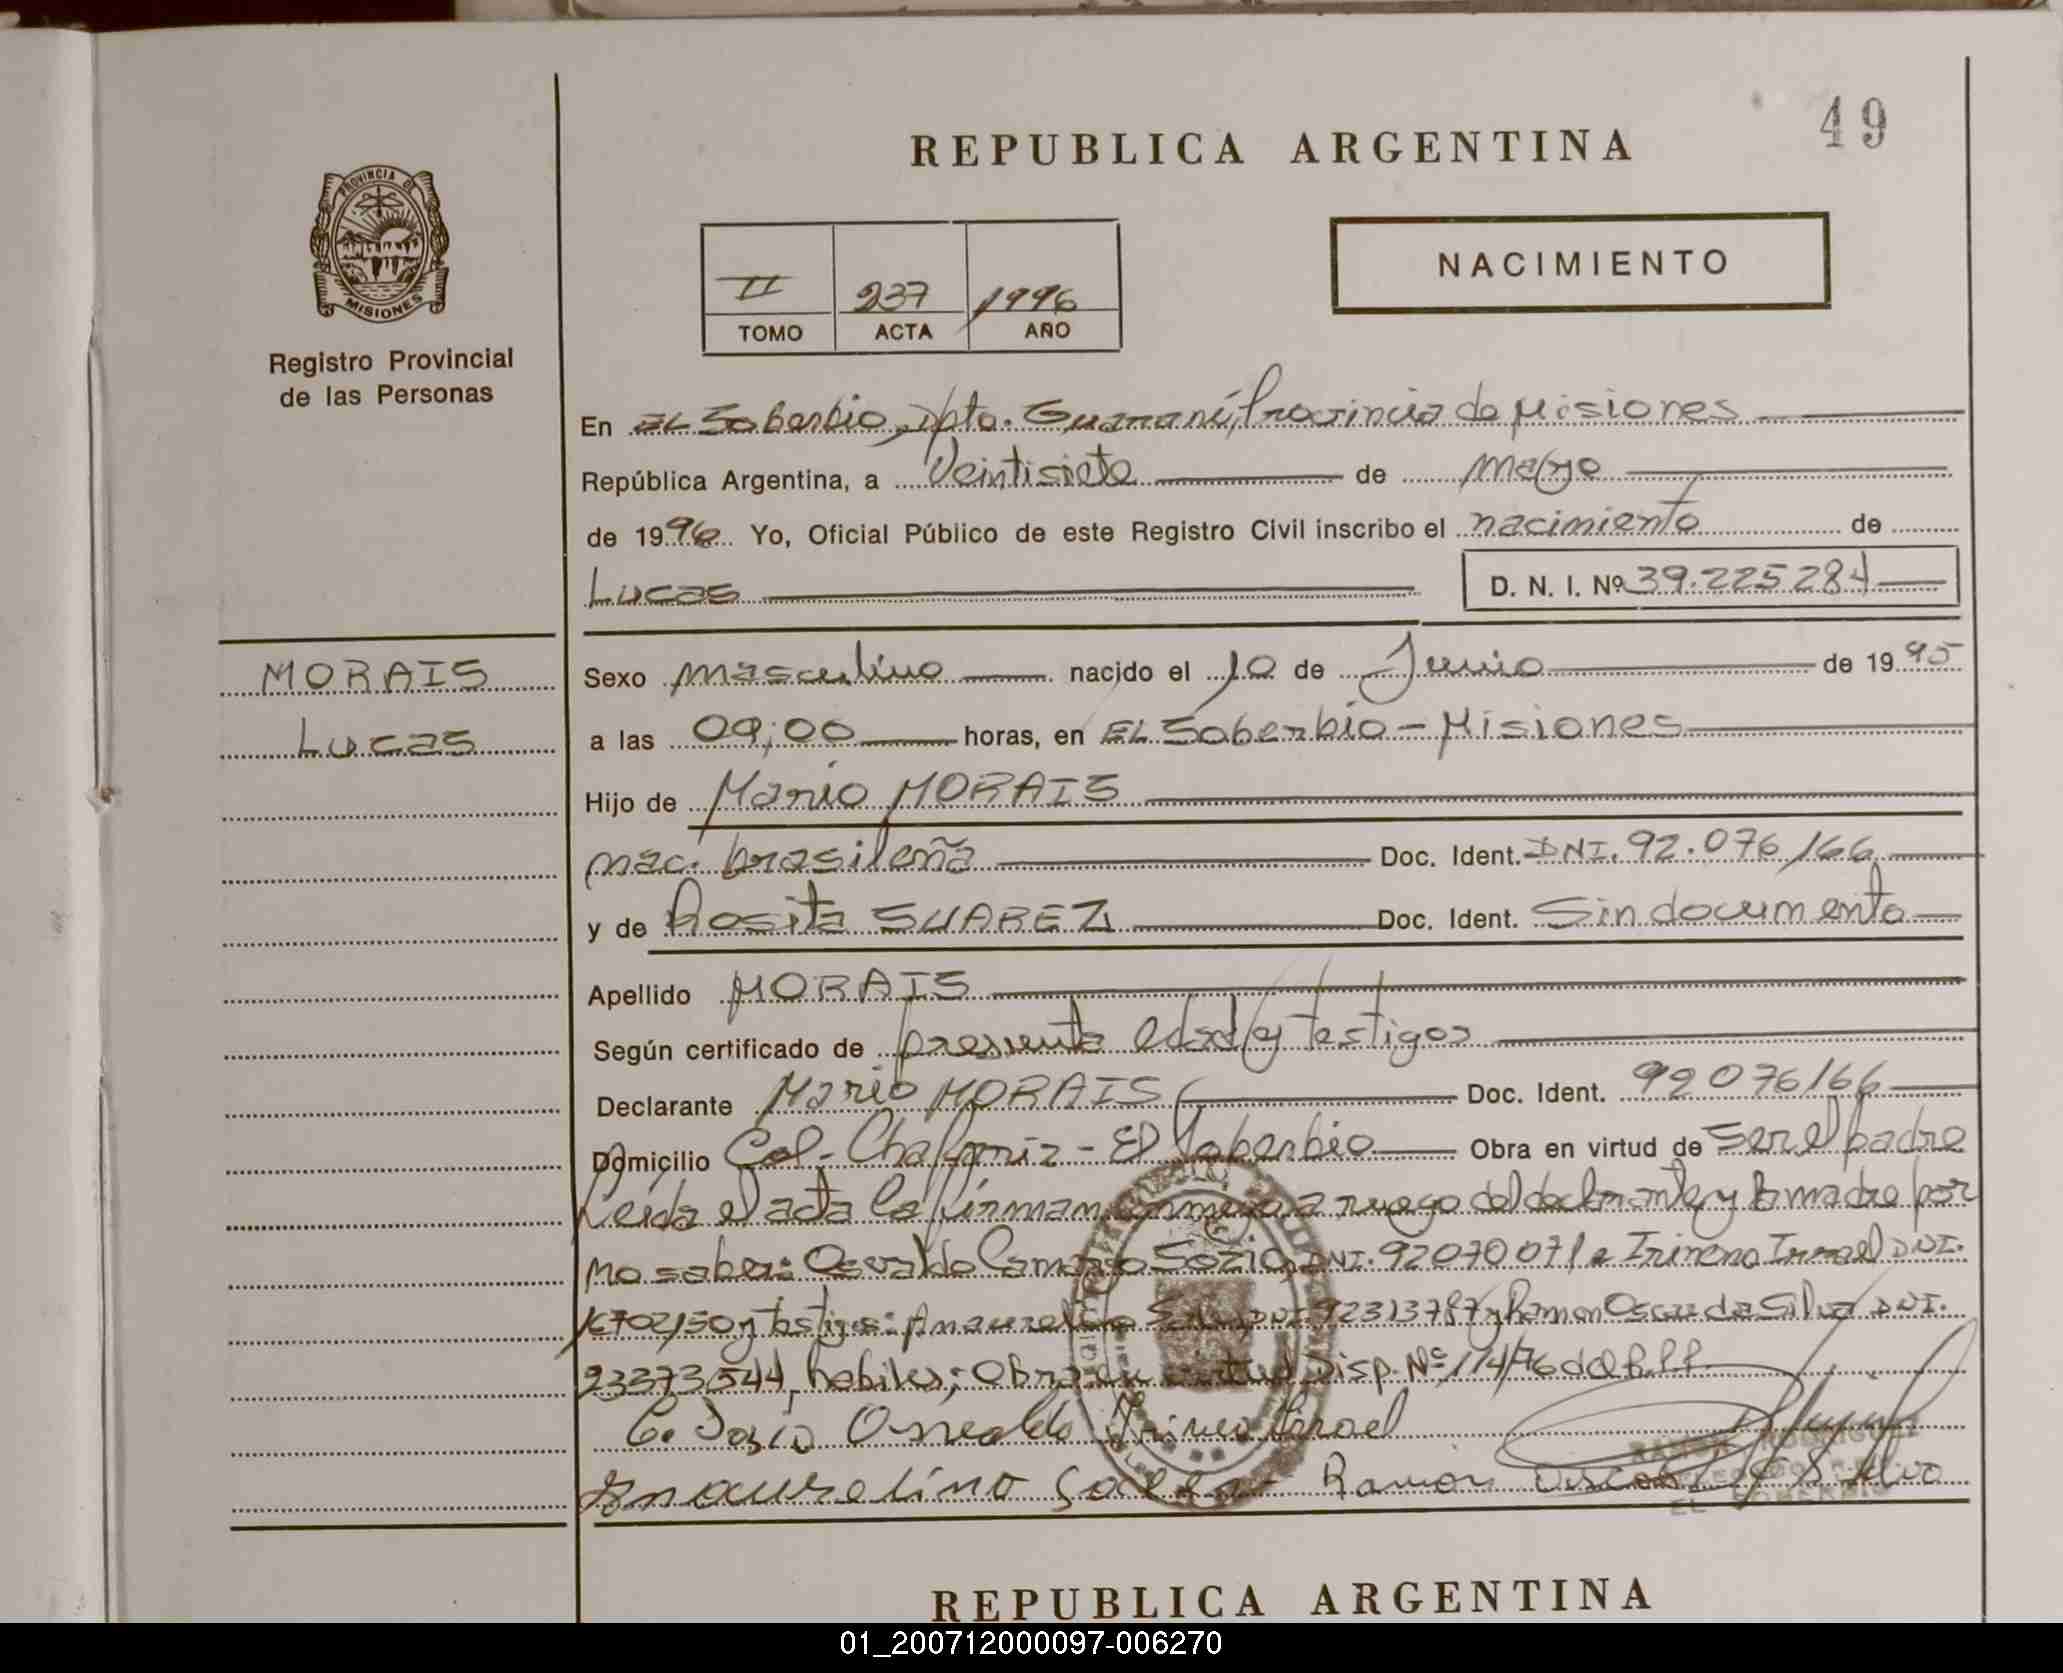 49
REPUBLICA ARGENTINA
PROVINCIA DE
MISIONES
NACIMIENTO
II 237 1996
TOMO ACTA AÑO
Registro Provincial
de las Personas
En EL Soberbio, Dpto. Guaraní, Provincia de Misiones
República Argentina, a Veintisiete de mayo
de 1996 Yo, Oficial Público de este Registro Civil inscribo el nacimiento de
Lucas D. N. I. Nº 39.225284
MORAIS
Lucas
Sexo masculino nacido el 10 de Junio de 1995
a las 09:00 horas, en EL Soberbio - Misiones
Hijo de Mario MORAIS
nac. brasileña Doc. Ident. DNI. 92.076166
y de Rosita SUAREZ Doc. Ident. Sin documento
Apellido MORAIS
Según certificado de presunta edad y testigos
Declarante Mario MORAIS Doc. Ident. 92076166
Domicilio Col. Chafariz - El Soberbio Obra en virtud de Ser el padre
Leída el acta la firman conmigo a ruego del declarante y la madre por
no saber: Osvaldo Camargo DNI. 92070071 e Irineo Israel DNI.
y testigos: Amaurelino DNI. 92313787 y Ramon Oscar da Silva DNI.
23373544, habiles; Obra en virtud Disp. Nº 114/76 del R.P.P.
Osvaldo Irineo Israel
Amaurelino Ramon Oscar Silva
EL SOBERBIO
REPUBLICA ARGENTINA
01_200712000097-006270